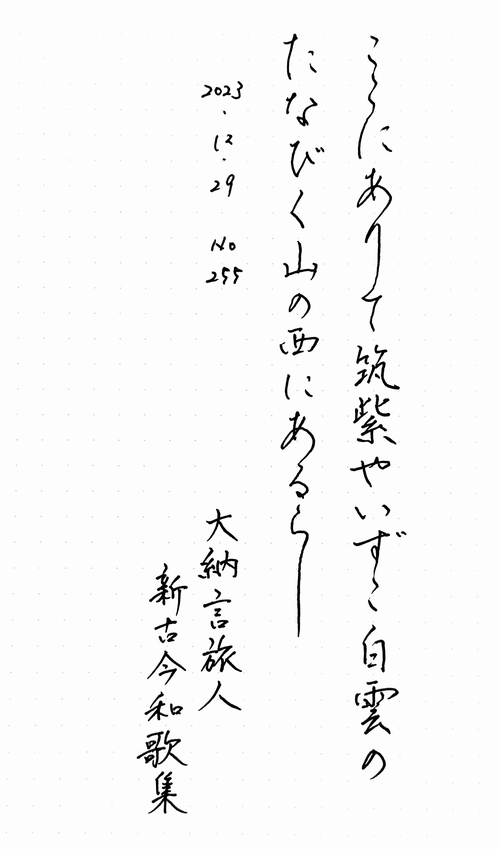 ここにありて筑紫やいずこ白雲の
たなびく山の西にあるらし
2023.12.29 No255
大納言旅人
新古今和歌集